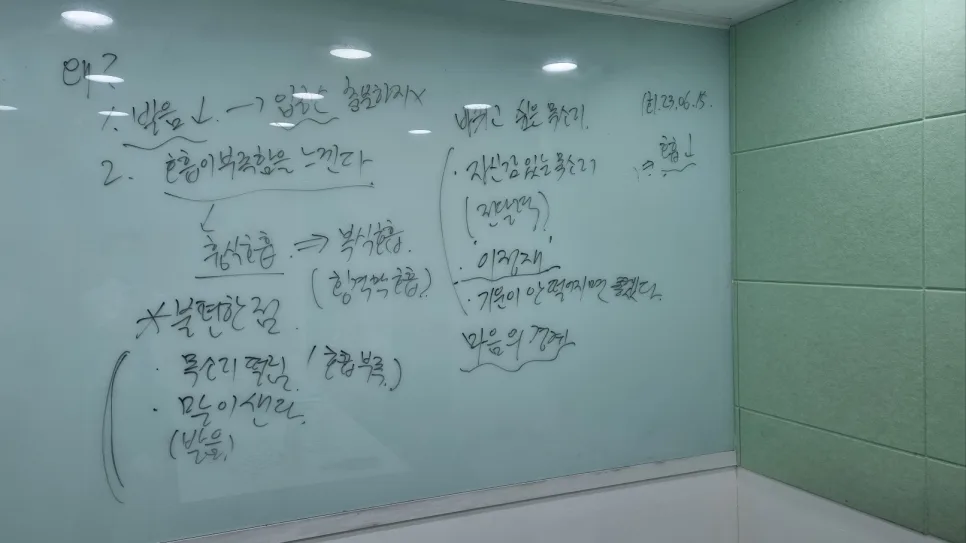 왜?
1. 발음↓ → 입술 충분하지x
2. 호흡이 부족함을 느낀다
흉식호흡 ⇒ 복식호흡.
(횡격막호흡)
*불편한 점.
· 목소리 떨림. (호흡 부족.)
· 말이 샌다.
(발음)
바뀌고 싶은 목소리.
· 자신감 있는 목소리
(전달력)
· 이정재
· 기운이 안 떨어지면 좋겠다.
마음의
23.06.15.
⇒ 호흡↓